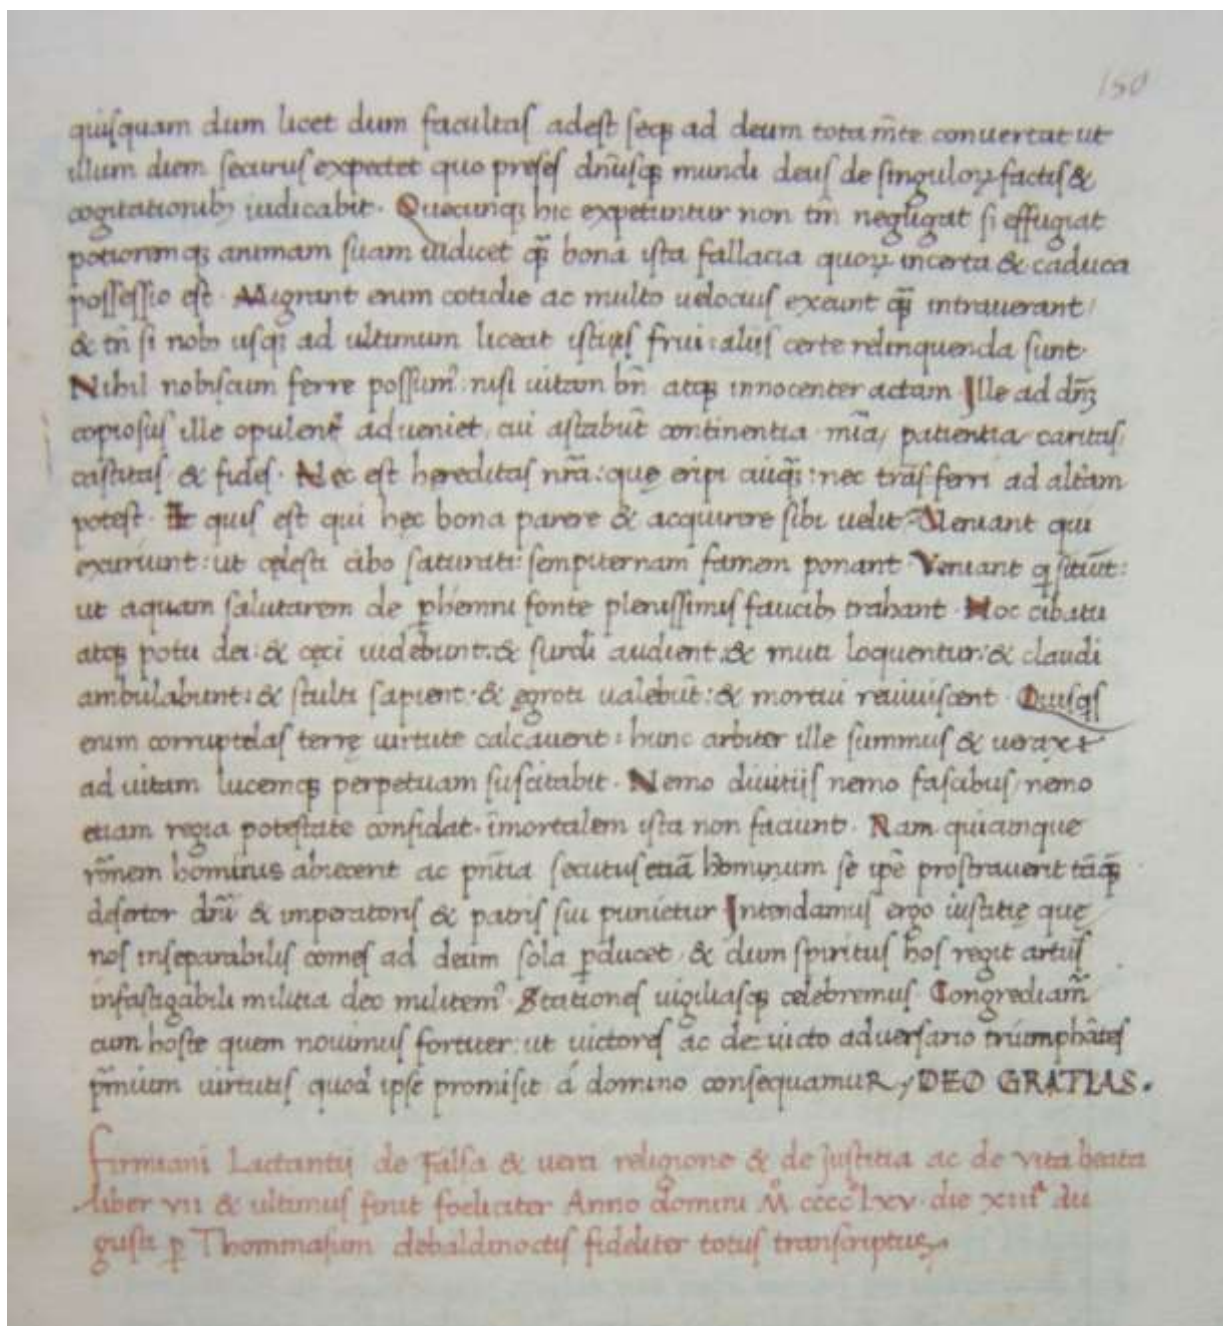 150
quisquam dum licet dum facultas adest seq₃ ad deum tota m̄te conuertat ut
illum diem securus expectet quo preses dn̄usq₃ mundi deus de singuloꝝ factis &
cogitationib₃ iudicabit · Quecunq₃ hic expetuntur non tm̄ negligat si effugiat
potioremq₃ animam suam iudicet q̄ bona ista fallacia quoꝝ incerta & caduca
possessio est · Migrant enim cotidie ac multo uelocius exeunt q̄ intrauerant /
& tn̄ si nob usq₃ ad ultimum liceat istius frui : aliis certe relinquenda sunt ·
Nihil nobiscum ferre possumꝰ : nisi uitam bn̄ atq₃ innocenter actam · Ille ad dm̄
copiosus ille opulentꝰ adueniet , cui astabūt continentia · mīa , patientia caritas ,
castitas · & fides · Nec est hereditas nr̄a : que eripi cuiq̄ : nec trāsferri ad altām
potest · Et quis est qui hęc bona parere & acquirere sibi uelit · Ueniant qui
exuriunt : ut cęlesti cibo saturati : sempiternam famem ponant · Veniant q sitiūt :
ut aquam salutarem de phēmni fonte plenissimis faucib₃ trahant · Hoc cibatu
atq₃ potu dei : & cęci uidebunt : & surdi audient : & muti loquentur : & claudi
ambulabunt : & stulti sapient · & ęgroti ualebūt : & mortui reuiuiscent · Quisqs
enim corruptelas terrę uirtute calcauerit : hunc arbiter ille summus & uerax
ad uitam lucemq₃ perpetuam suscitabit · Nemo diuitiis nemo fascibus , nemo
etiam regia potestate confidat · īmortalem ista non faciunt · Nam quicunque
rōnem hominis abiecerit ac pn̄tia secutus etiā hominum sē ipē prostrauerit tāq̄
desertor dn̄i & imperatoris & patris sui punietur · Intendamus ergo iustitię quę
nos inseparabilis comes ad deum sola ꝑducet · & dum spiritus hos regit artus
infastigabili militia deo militemꝰ · Stationes uigiliasq₃ celebremus · Congrediam̄
cum hoste quem nouimus fortiter : ut uictores ac de uicto aduersario triumphātes
p̄mium uirtutis quod ipse promisit á domino consequamuR , DEO GRATIAS .
firmiani Lactantij de Falsa & uera religione & de Justitia ac de vita beata
liber vii & ultimus finit foeliciter Anno domini Mº ccccº lxv · die xiiiiª Au
gusti ꝑ Thommasum debaldinoctis fideliter totus transcriptus